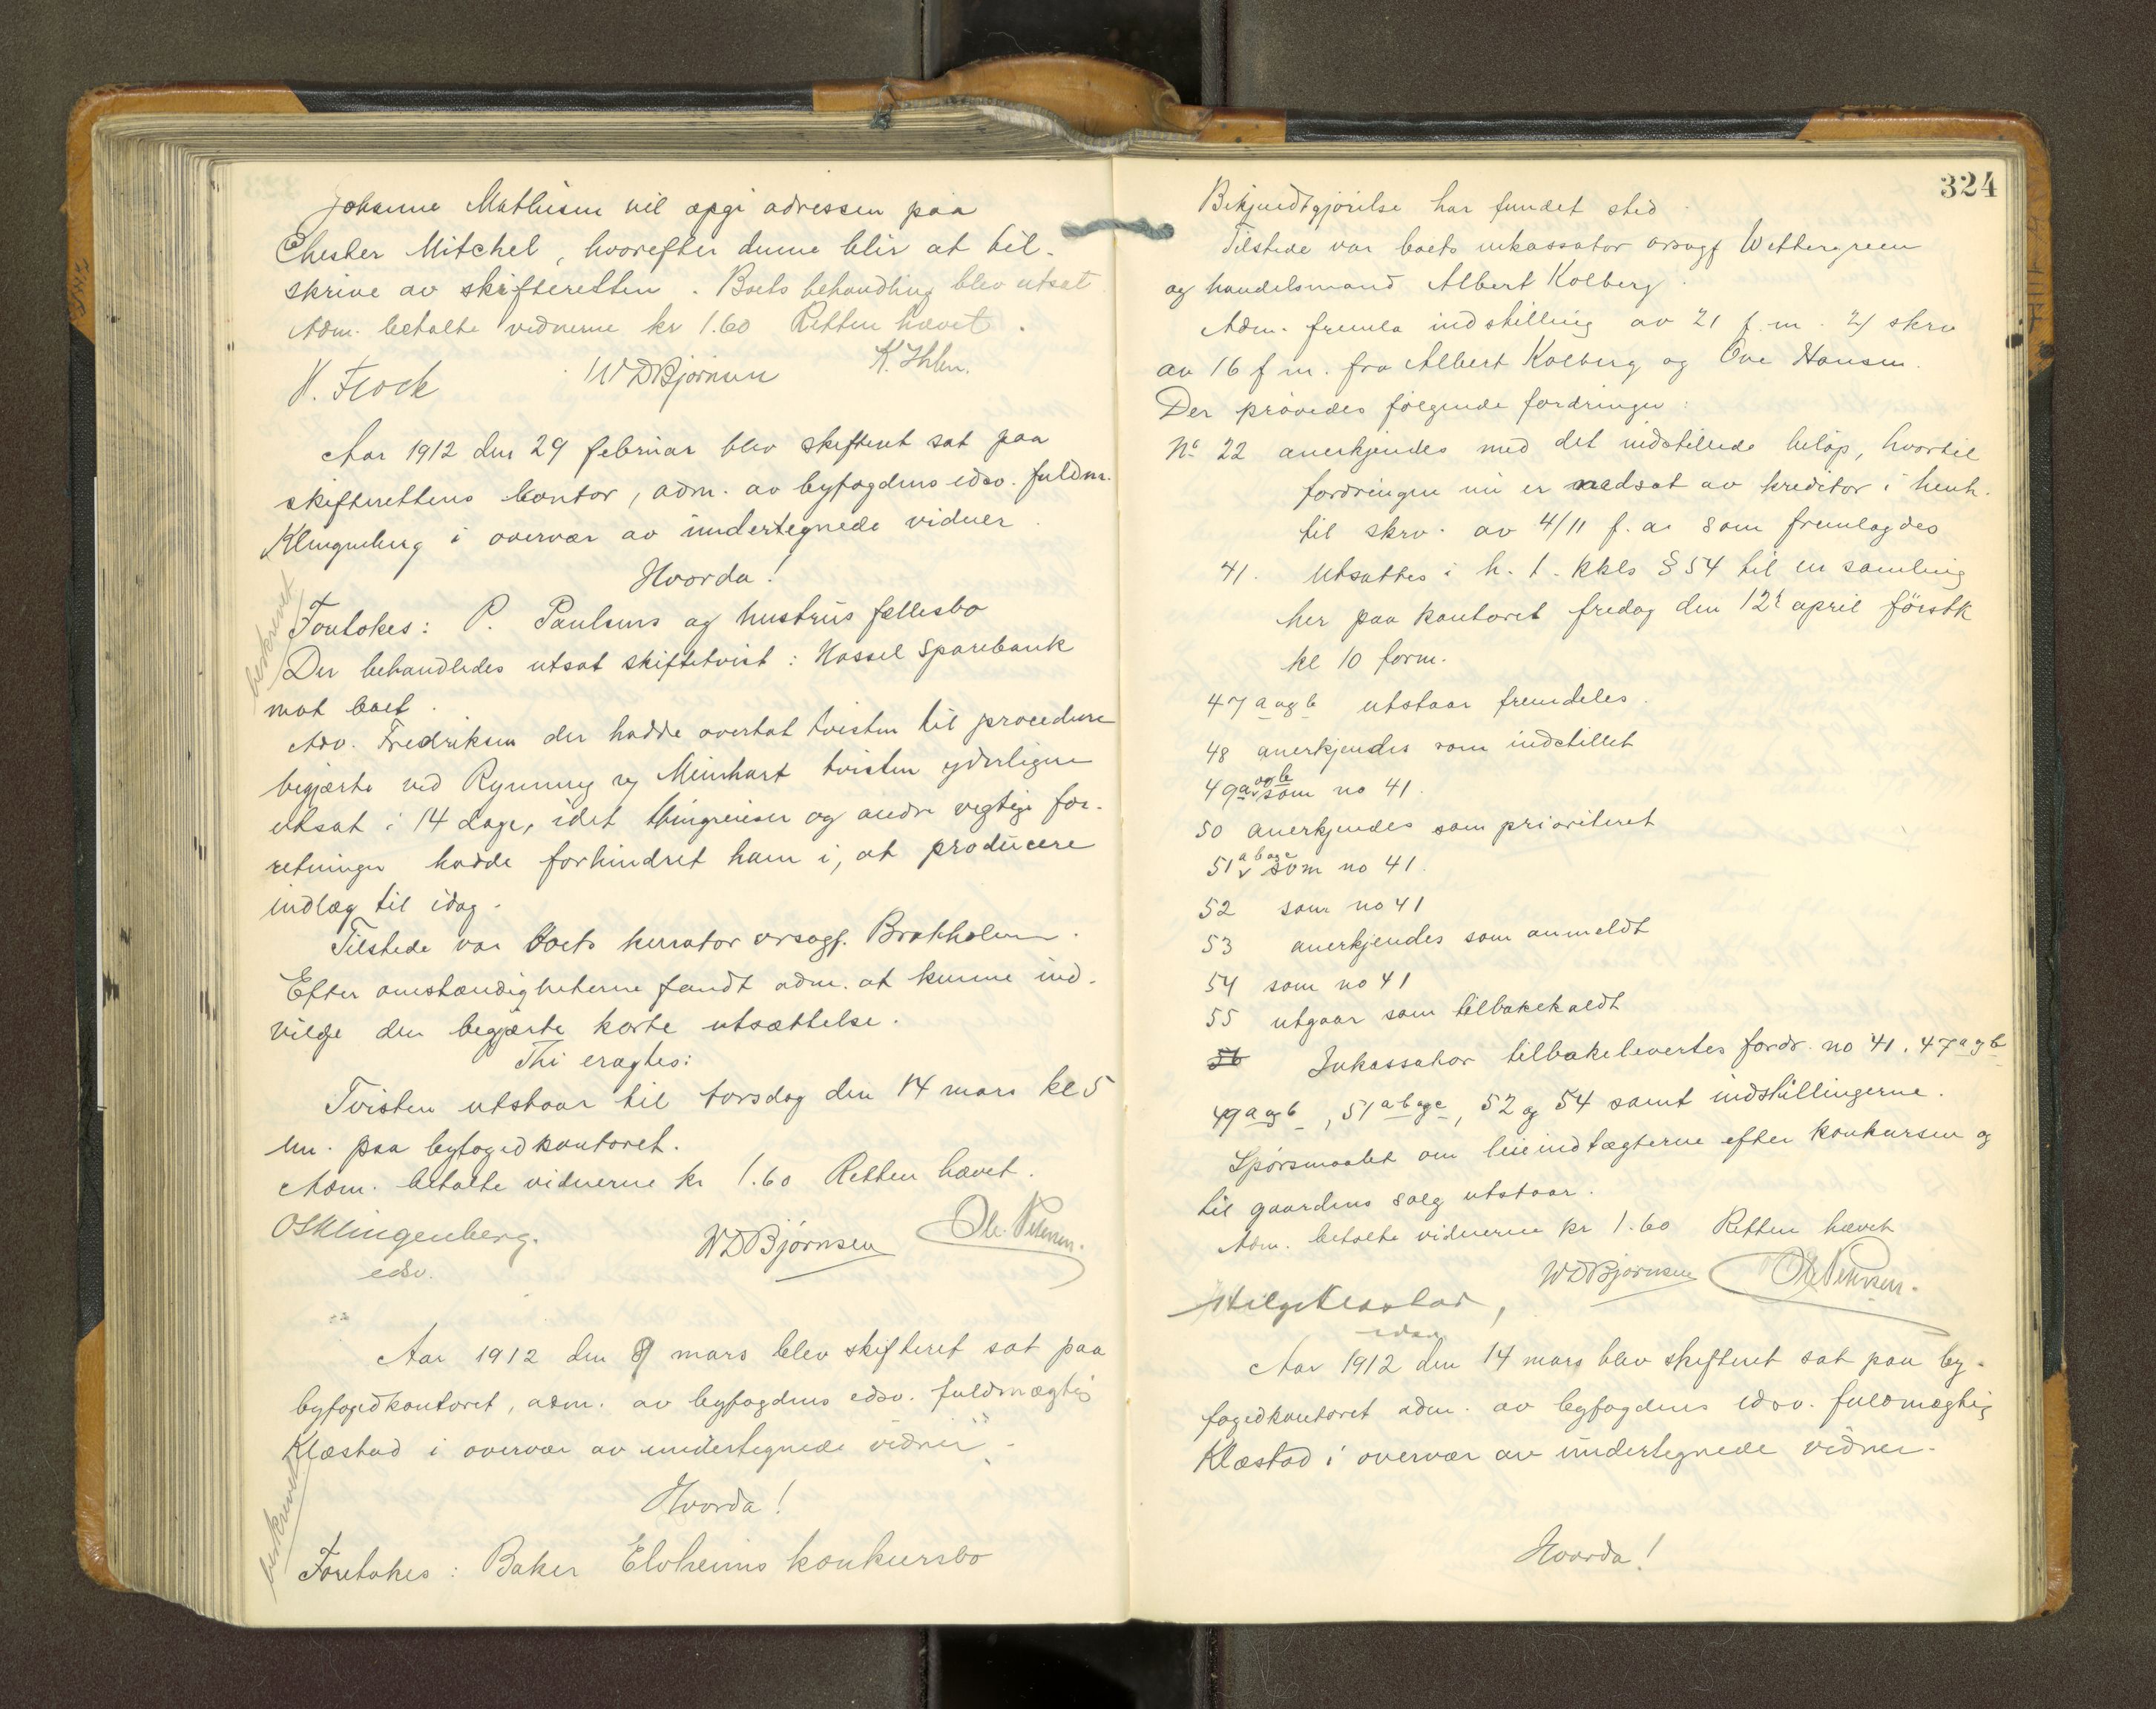 Johanne Mathisen vil opgi adressen paa
Chester Mitchel, hvorefter denne blir at til-
skrive av skifteretten. Boets behandling blev utsat
Adm. betalte vidnerne kr 1.60 Retten hævet.
H. Frock WDBjørnsen K. Ihlen.
Aar 1912 den 29 februar blev skifteret sat paa
skifterettens kontor, adm. av byfogdens edsv. fuldm.
Klingenberg i overvær av undertegnede vidner.
Hvorda!
beskrevet
Foretokes: P. Paulsens og hustrus fællesbo
Der behandledes utsat skiftetvist: Hassel Sparebank
mot boet.
Adv. Fredriksen der hadde overtat tvisten til procedure
begjærte ved Rynning og Meinhart tvisten yderligere
utsat i 14 dage, idet thingreiser og andre vegtige for-
retninger hadde forhindret ham i, at producere
indlæg til idag.
Tilstede var boets kurator orsagf. Brakholen.
Efter omstændigheterne fandt adm. at kunne ind-
vilge den begjærte korte utsættelse.
Thi eragtes:
Tvisten utstaar til torsdag den 14 mars kl 5
em. paa byfogedkontoret.
Adm. betalte vidnerne kr 1.60 Retten hævet.
OSKlingenberg. WDBjørnsen Ole Petersen.
edsv.
Aar 1912 den 9 mars blev skifteret sat paa
byfogedkontoret, adm. av byfogdens edsv. fuldmægtig
Klæstad i overvær av undertegnede vidner.
Hvorda!
beskrevet
Foretokes: Baker Elvheims konkursbo
324
Bekjendtgjørelse har fundet sted.
Tilstede var boets inkassator orsagf Wettergreen
og handelsmand Albert Kolberg.
Adm. fremla indstilling av 21 f. m. 2) skrv
av 16 f m. fra Albert Kolberg og Ove Hansen.
Der prøvedes følgende fordringer:
No 22 anerkjendes med det indstillede beløp, hvortil
fordringen nu er nedsat av kreditor i henh.
til skrv. av 4/11 f. a. som fremlagdes
41. Utsattes i h. t. kkls § 54 til en samling
her paa kontoret fredag den 12t april førstk
kl 10 form.
47 a og b utstaar fremdeles.
48 anerkjendes som indstillet
49 a og b som no 41.
50 anerkjendes som prioriteret
51 a b og c som no 41.
52 som no 41
53 anerkjendes som anmeldt
54 som no 41
55 utgaar som tilbakekaldt
56 Inkassator tilbakelevertes fordr. no 41. 47 a og b
49 a og b, 51 a b og c, 52 og 54 samt indstillingerne.
Spørsmaalet om leieindtægterne efter konkursen og
til gaardens salg utstaar.
Adm. betalte vidnerne kr 1.60 Retten hævet
Helge Klæstad, WDBjørnsen Ole Petersen.
edsv.
Aar 1912 den 14 mars blev skifteret sat paa by-
fogedkontoret adm. av byfogdens edsv. fuldmægtig
Klæstad i overvær av undertegnede vidner.
Hvorda!